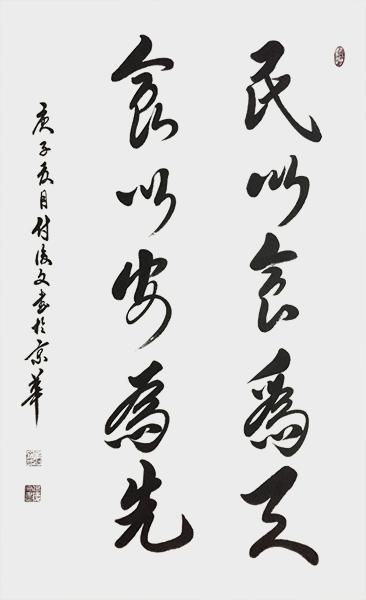 民以食為天
食以安為先
庚子夏月付俊文書於京華